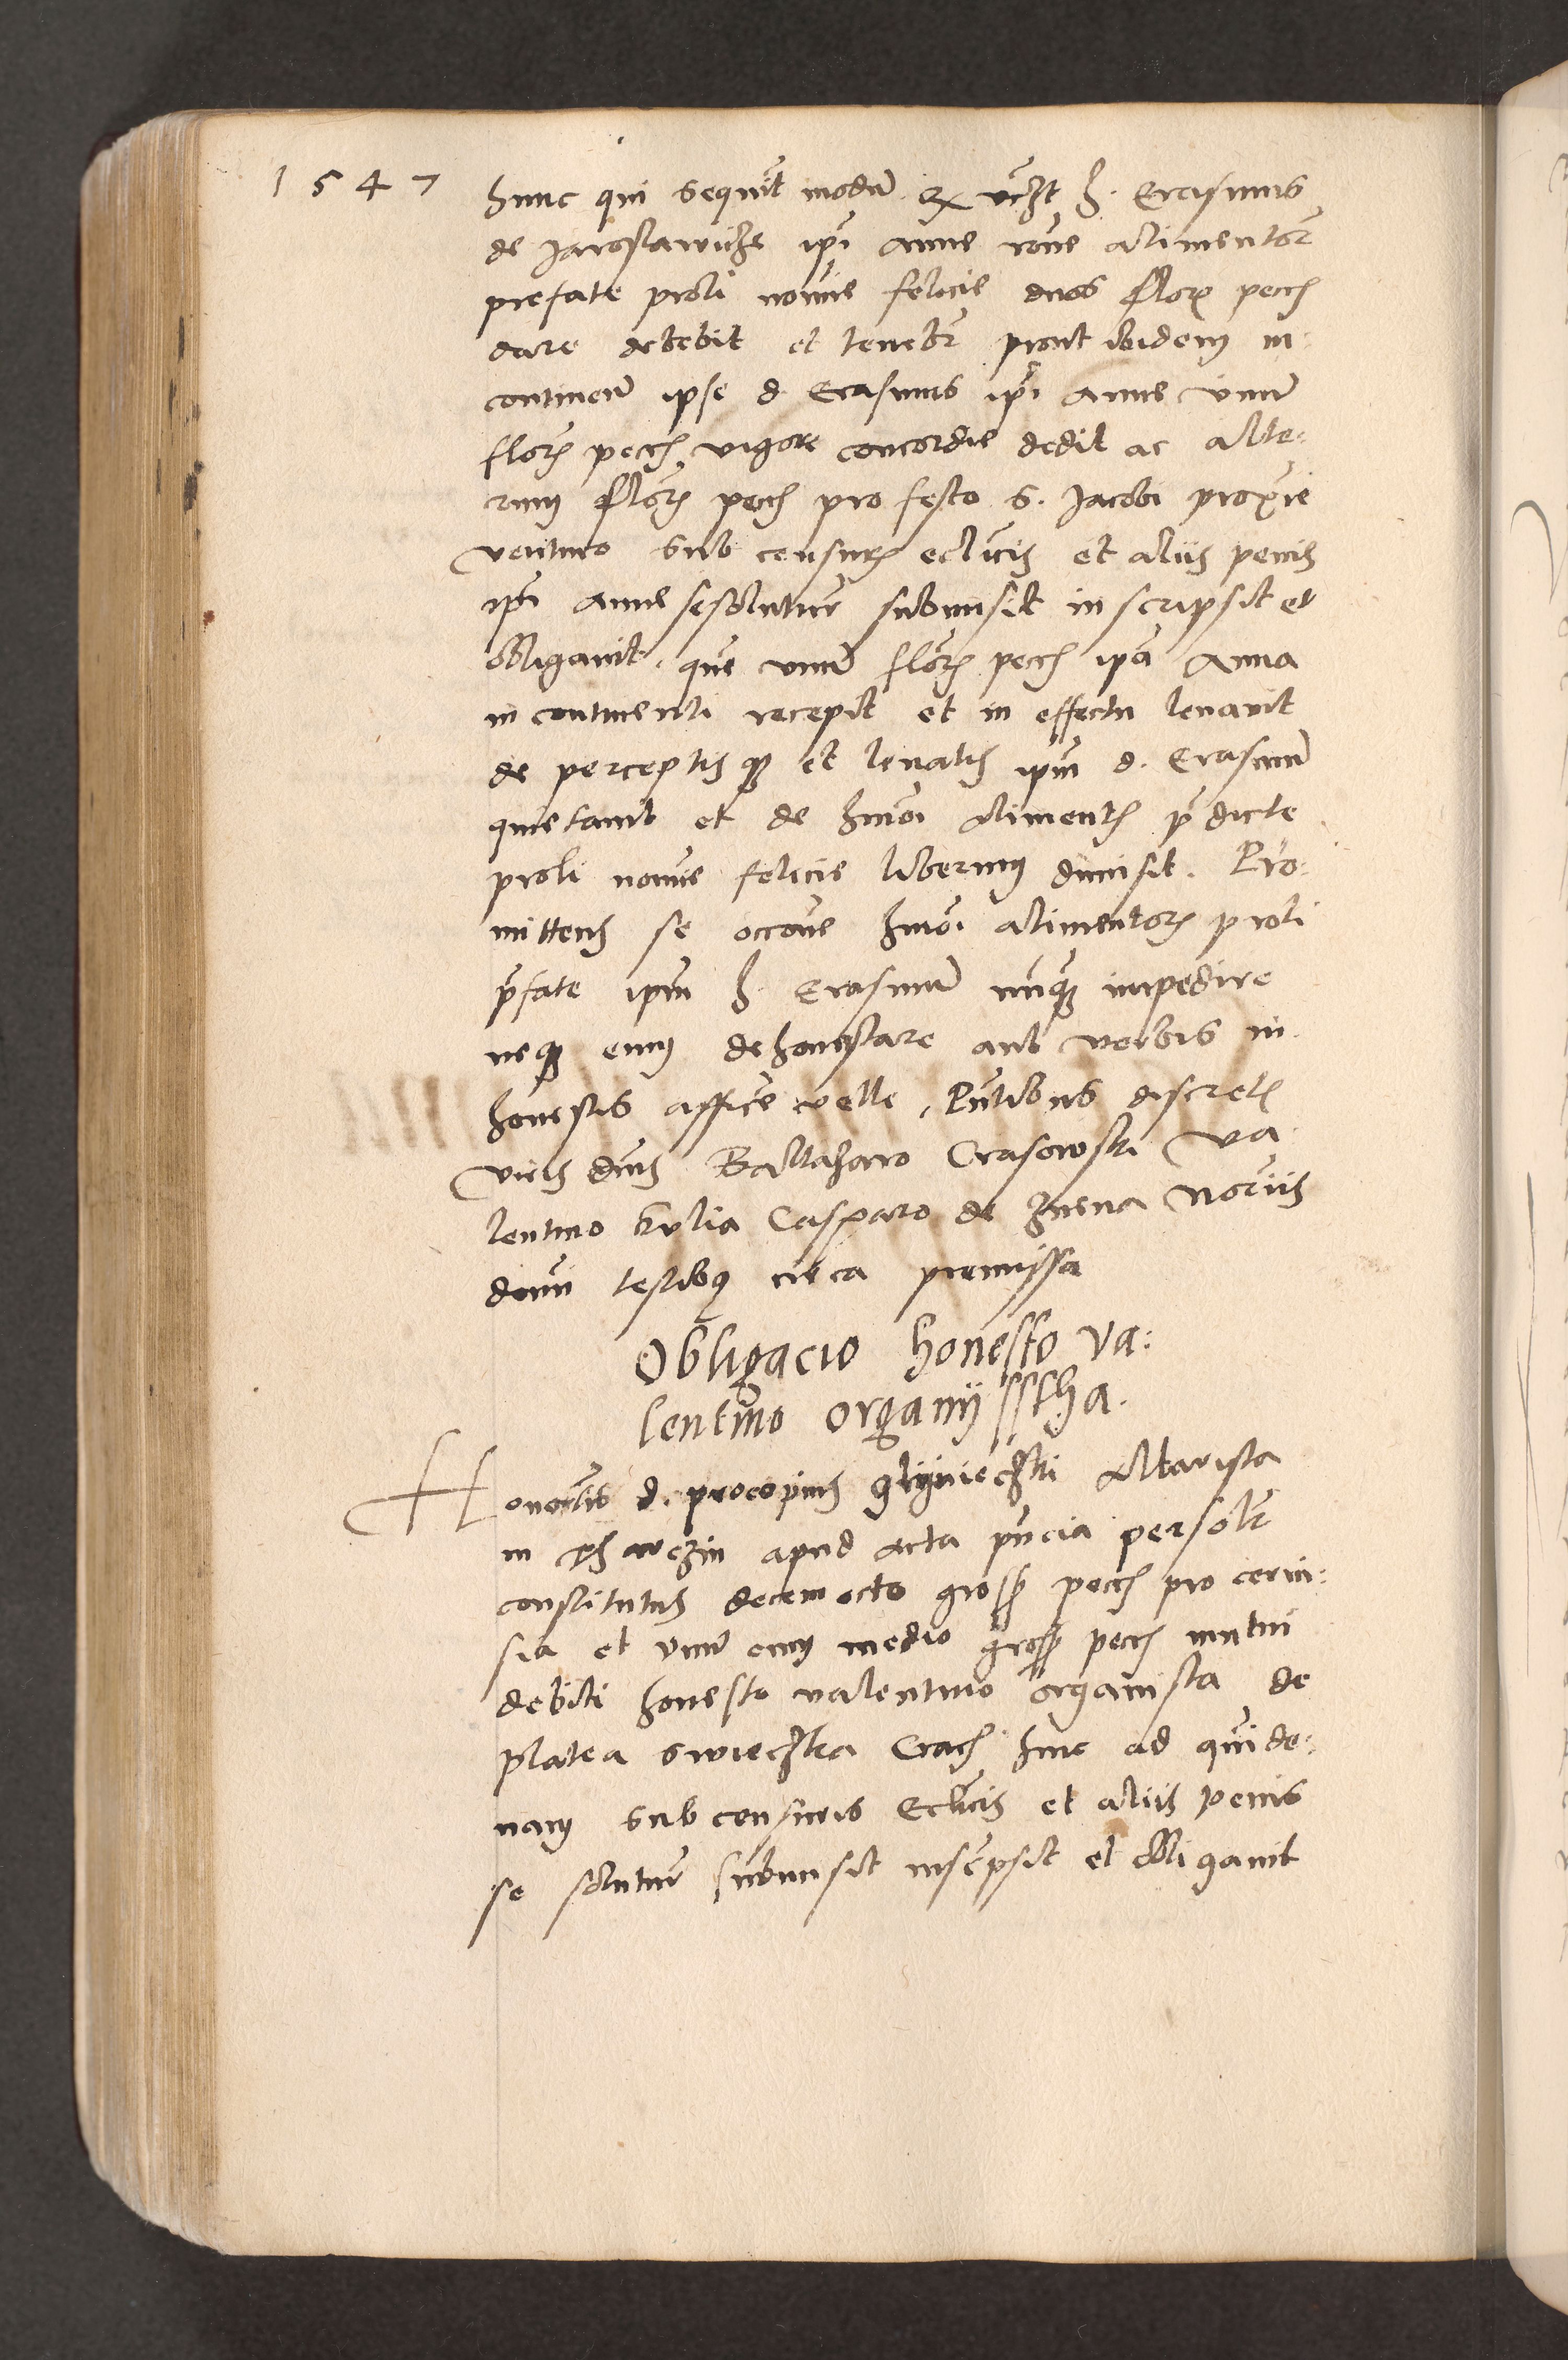 1547
hunc qui sequit modu Q vczt h. Erasmus
de Jaroslawicze ipi Anne rone alimentor
prefate proli nomie felicis duos flor pecch
dare debebit et tenebr prout ibidem in:
continen ipse d Erasmus ipi Anne unu
flor pecch vigore concordie dedit ac alte:
rum flor pecch pro festo S. Jacobi proxie
venturo sub censuris ecclicis et aliis penis
ipi Anne se soluturu submisit inscripsit et
obligavit, que unu flor pecch ipa Anna
in continenti recepit et in effectu levavit
de perceptisq et levatis ipm d. Erasmu
quietavit et de hmoi alimentis pdicte
proli nomie felicis liberum dimisit. Pro:
mittens se occone hmoi alimentor proli
pfate ipm h. Erasmu nunq impedire
neq eum dehonestare aut verbis in
honestis afficere velle, Pntibus discretis
viris dnis Baltazaro Crasowski Va
lentino Kulia Casparo de Znena Notariis
domi testibus circa premissa
Obligacio honesto Va:
lentino organysstha.
Honorabilis d. procopius glynieczki Altarista
in arce apud Acta pncia personalr
constitutus decem octo gross pecch pro cerui:
sia et unu cum medio gross pecch mutui
debiti honesto valentino organista de
platea swieczka Crac hinc ad quinde:
nam sub censuris Ecclicis et aliis penis
se soluturu submisit inscripsit et obligavit